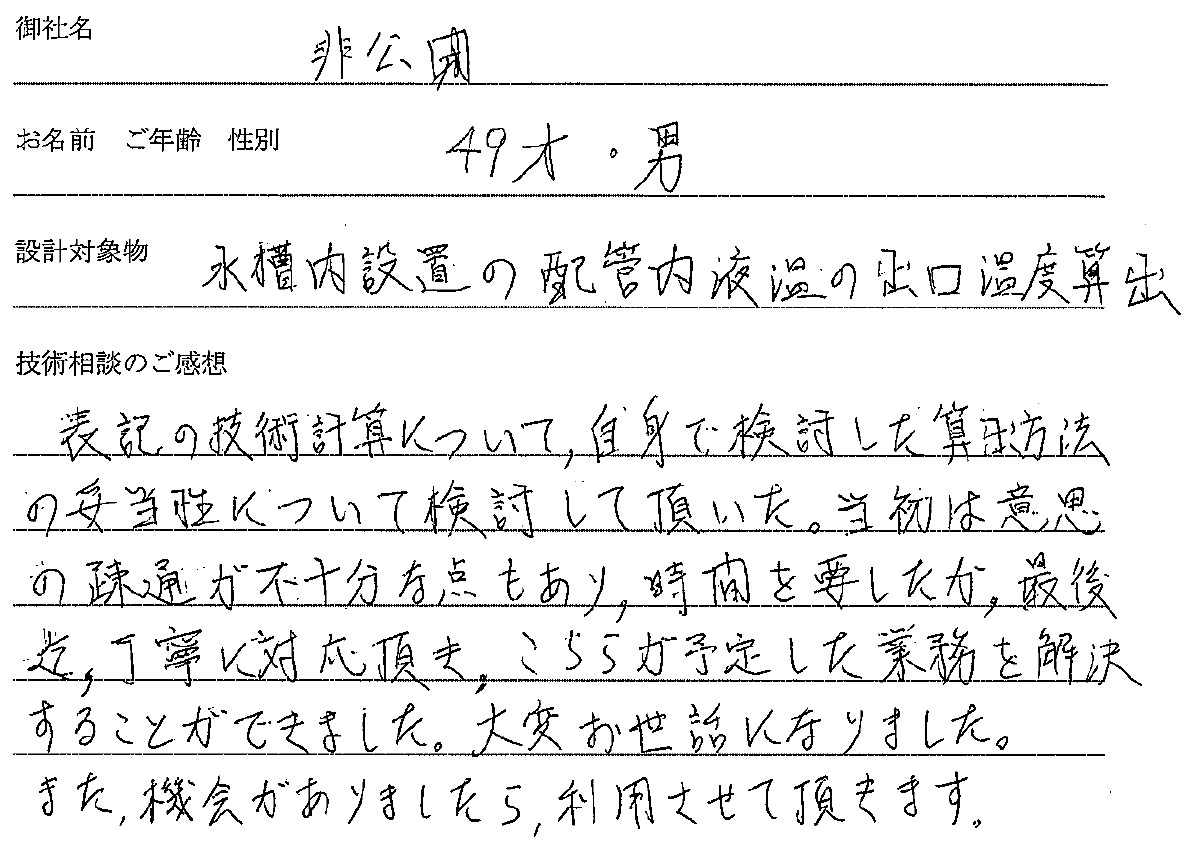 御社名
非公開
お名前 ご年齢 性別
49才・男
設計対象物
水槽内設置の配管内液温の出口温度算出
技術相談のご感想
表記の技術計算について,自身で検討した算出方法
の妥当性について検討して頂いた。当初は意思
の疎通が不十分な点もあり,時間を要したが,最後
迄,丁寧に対応頂き,こちらが予定した業務を解決
することができました。大変お世話になりました。
また,機会がありましたら,利用させて頂きます。